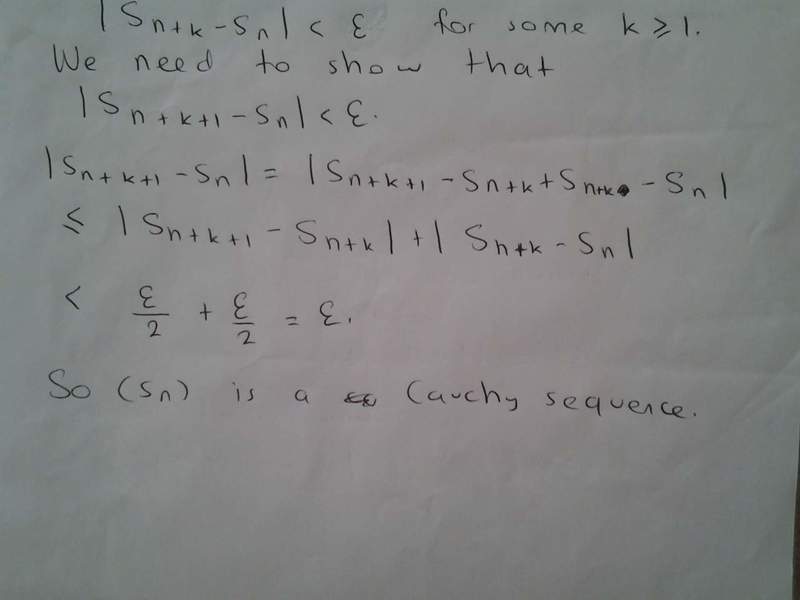 |S_{n+k} - S_n| < ε for some k ≥ 1.
We need to show that
|S_{n+k+1} - S_n| < ε.
|S_{n+k+1} - S_n| = |S_{n+k+1} - S_{n+k} + S_{n+k} - S_n|
≤ |S_{n+k+1} - S_{n+k}| + |S_{n+k} - S_n|
< ε/2 + ε/2 = ε.
So (S_n) is a Cauchy sequence.